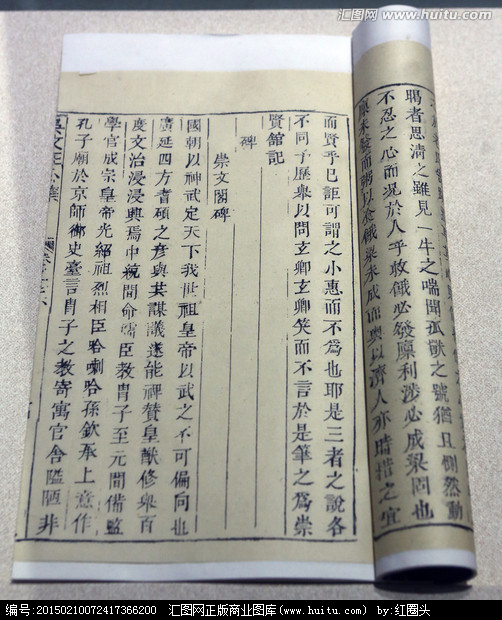 汇图网
www.huitu.com
聞者思濟之雖見一牛之喘聞孤獸之號猶且惻然動
不忍之心而況於人乎救餓必發廩利涉必成梁問也
廩未發而粥以食餓梁未成而輿以濟人亦時措之宜
而賢乎已詎可謂之小惠而不為也耶是三者之說各
不同予歷舉以問玄卿玄卿笑而不言於是筆之為崇
賢館記
碑
崇文閣碑
國朝以神武定天下我世祖皇帝以武之不可偏尚也
廣延四方耆碩之彥與共謀議遂能裨贊皇猷修舉百
度文治浸浸興焉中統間命儒臣教胄子至元間備監
學官成宗皇帝光紹祖烈相臣哈喇哈孫欽承上意作
孔子廟於京師御史臺言胄子之教寄寓官舍隘陋非
吳文正公集
編号:20150210072417366200 汇图网正版商业图库(www.huitu.com) by:红圈头